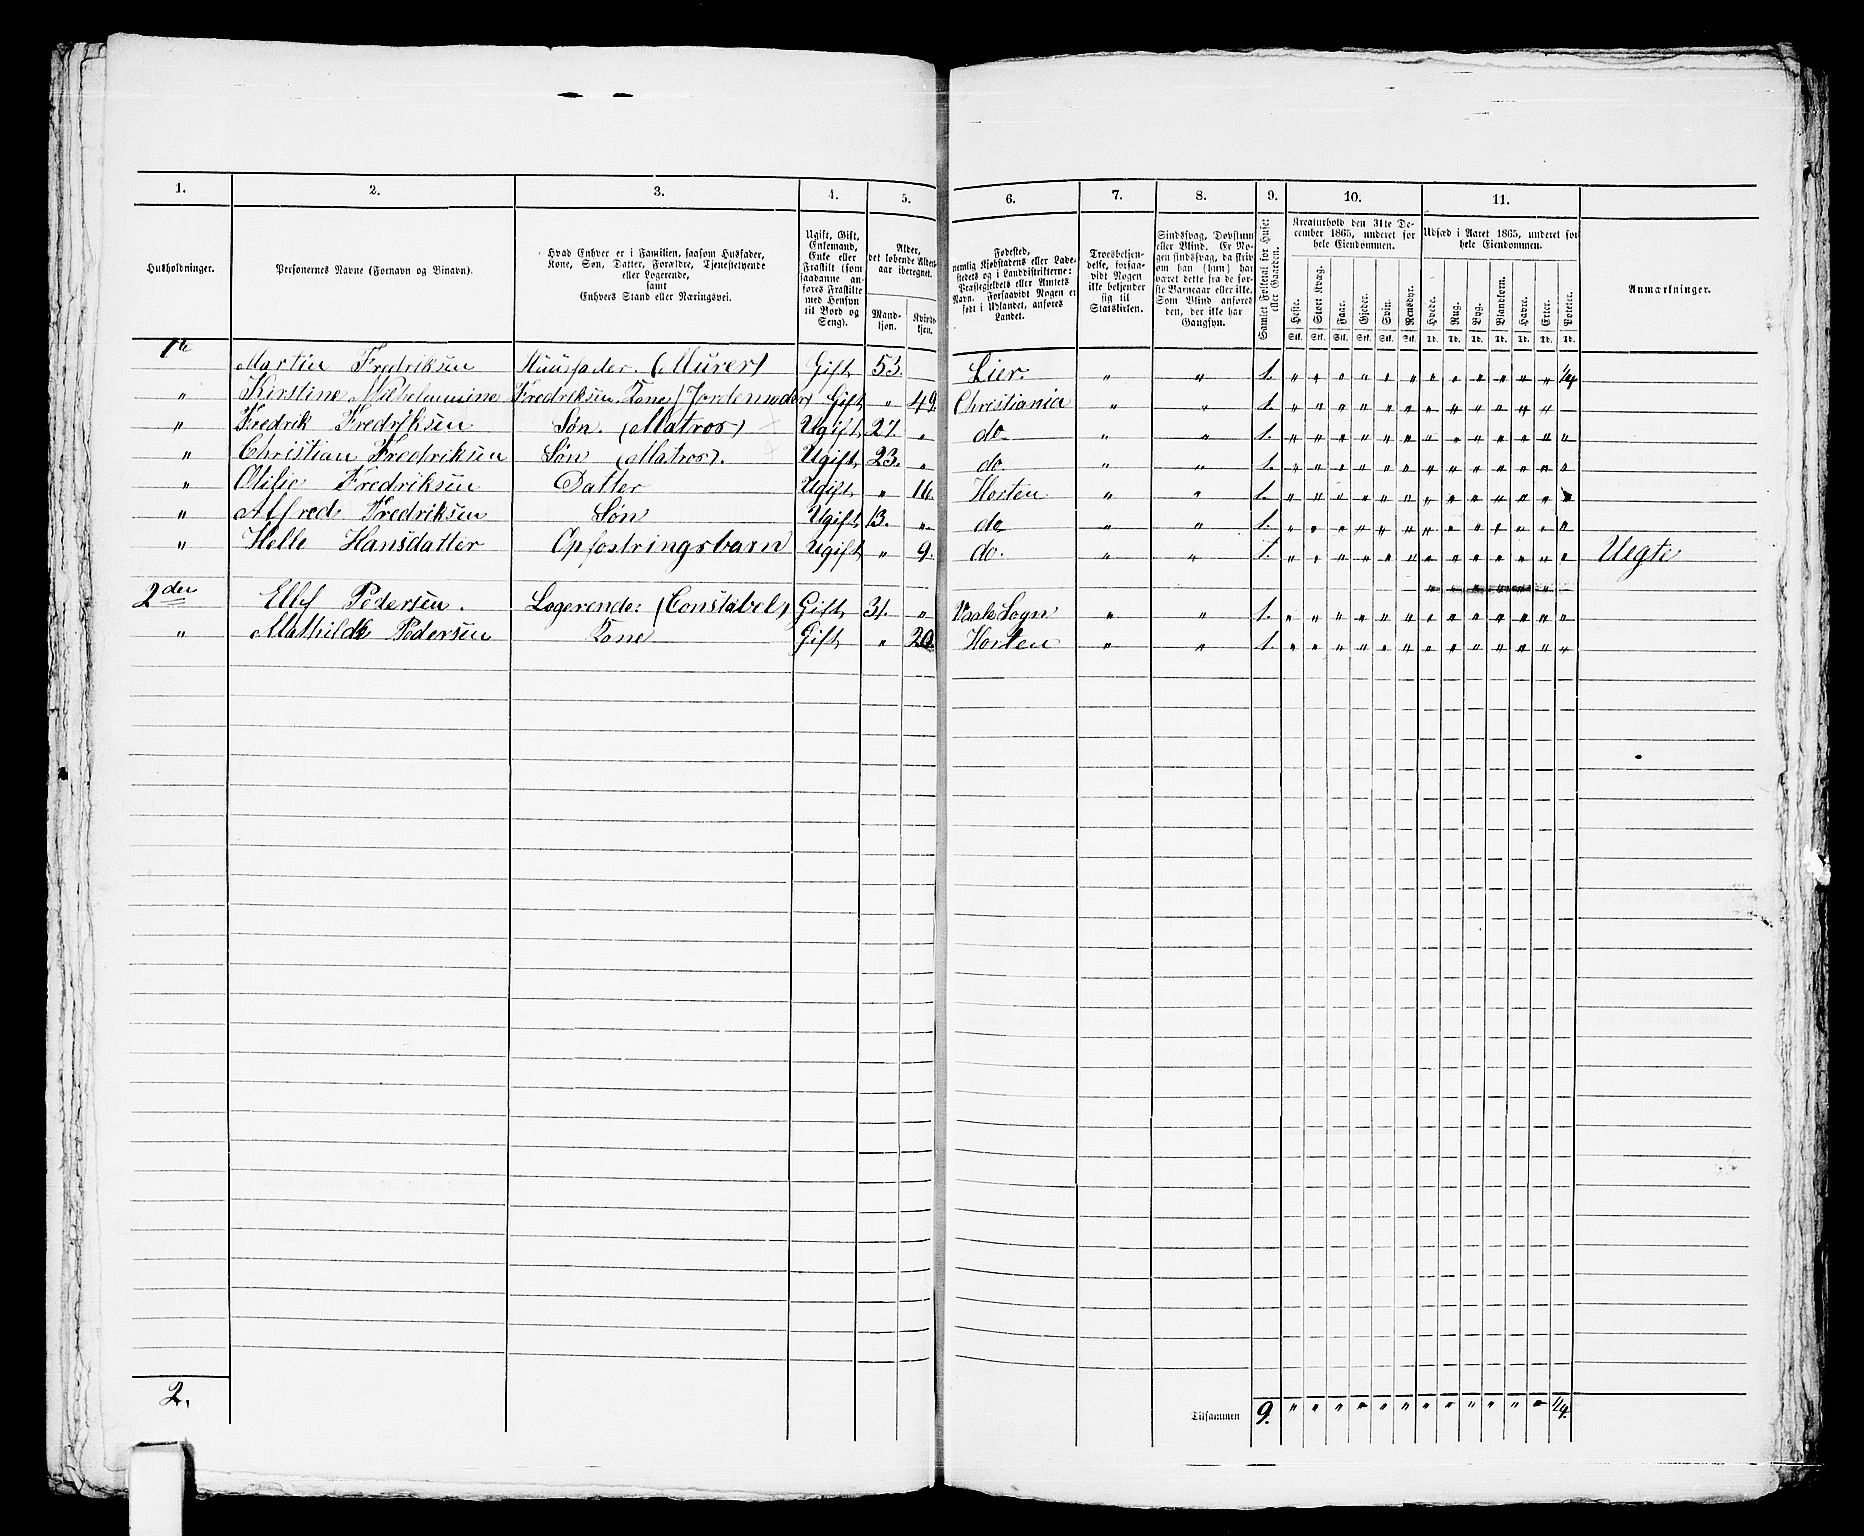 1. 2. 3. 4. 5. 6. 7. 8. 9. 10. 11.
Husholdninger.
Personernes Navne (Fornavn og Binavn).
Hvad Enhver er i Familien, saasom Husfader,
Kone, Søn, Datter, Forældre, Tjenestetyende
eller Logerende,
samt
Enhvers Stand eller Næringsvei.
Ugift, Gift,
Enkemand,
Enke eller
Fraskilt (som
saadanne an-
føres Fraskilte
med Hensyn
til Bord og
Seng).
Alder,
det løbende Alders-
aar iberegnet.
Mand-
kjøn.
Kvinde-
kjøn.
Fødested,
nemlig Kjøbstadens eller Lade-
stedets og i Landdistrikterne:
Præstegjeldets eller Amtets
Navn. Forsaavidt Nogen er
født i Udlandet, anføres
Landet.
Troesbekjen-
delse, forsaa-
vidt Nogen
ikke bekjender
sig til
Statskirken.
Sindssvag, Døvstum
eller Blind. Er No-
gen sindssvag, da skri-
ves om han (hun) har
været dette fra de før-
ste Barneaar eller ikke.
Som Blind anføres
den, der ikke har
Gangsyn.
Samlet Folketal for Huset
eller Gaarden.
Kreaturhold den 31te De-
cember 1865, underet for
hele Eiendommen.
Heste. Stort Kvæg. Faar. Gjeder. Svin. Rensdyr.
Stk. Stk. Stk. Stk. Stk. Stk.
Udsæd i Aaret 1865, underet for
hele Eiendommen.
Hvede. Rug. Byg. Blandkorn. Havre. Erter. Poteter.
Td. Td. Td. Td. Td. Td. Td.
Anmærkninger.
1te Martin Fredriksen Huusfader. (Murer) Gift 53. Lier. " " 1. " " " " " " " " " " " " 1/4
" Kirstine Wilhelmmine Fredriksen. Kone (Jordemoder) Gift " 49. Christiania " " 1. " " " " " " " " " " " "
" Fredrik Fredriksen Søn. (Matros) Ugift 27. " do " " 1. " " " " " " " " " " " " "
" Christian Fredriksen Søn (Matros). Ugift 23. " do " " 1. " " " " " " " " " " " " "
" Olifie Fredriksen Datter Ugift " 16. Horten " " 1. " " " " " " " " " " " " "
" Alfred Fredriksen Søn Ugift 13. " do " " 1. " " " " " " " " " " " " "
" Helle Hansdatter Opfostringsbarn Ugift " 9. do. " " 1. " " " " " " " " " " " " " Uegte
2den Ellef Pedersen. Logerende: (Constabel) Gift 31. " Vaale Sogn " " 1. " " " " " " " " " " " " "
" Mathilde Pedersen Kone Gift " 20. Horten " " 1. " " " " " " " " " " " " "
2. Tilsammen 9. " " " " " " " " " " " " 1/4.